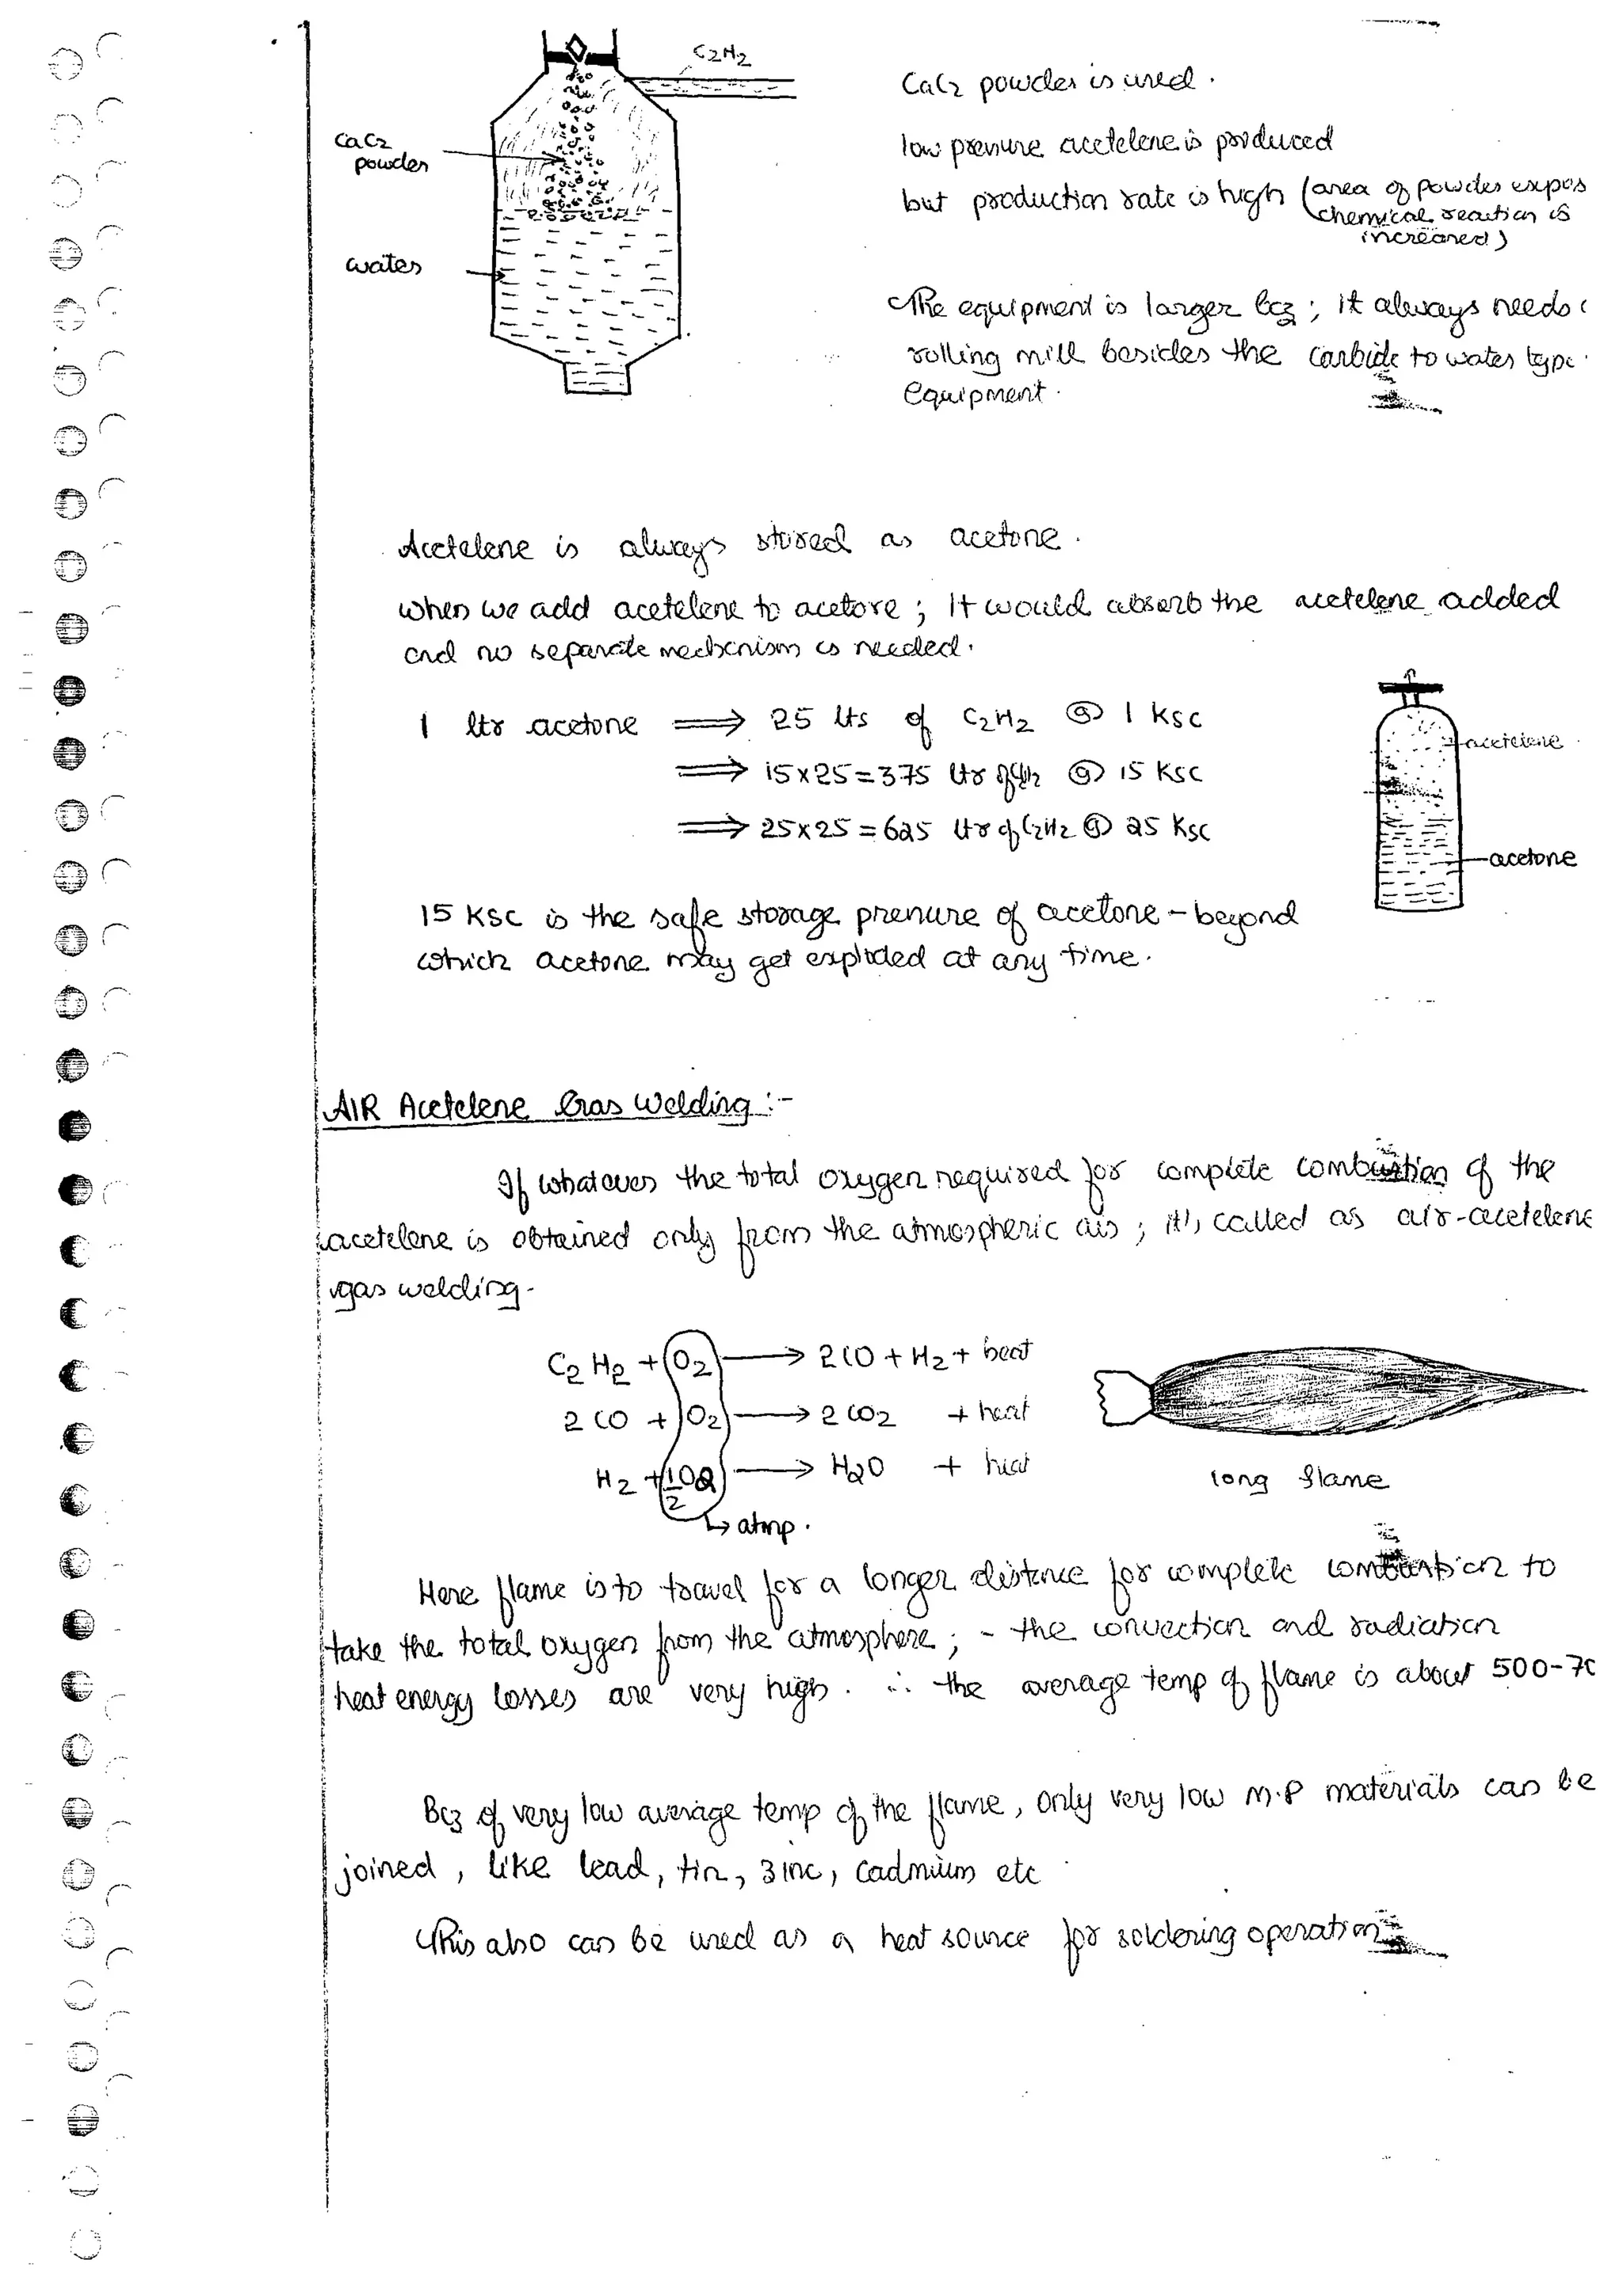 C2H2
CaC2 powder is used.
CaC2
powder
low pressure acetelene is produced
but production rate is high (area of powder expos
chemical reaction is
increased)
water
The equipment is larger bcz ; it always needs
rolling mill besides the carbide to water type
Equipment.
Acetelene is always stored as acetone.
when we add acetelene to acetone ; It would absorb the acetelene added
and no separate mechanism is needed.
1 ltr acetone ⟹ 25 lts of C2H2 @ 1 KSC
⟹ 15×25=375 ltr of C2H2 @ 15 KSC
acetelene
⟹ 25×25=625 ltr of C2H2 @ 25 KSC
acetone
15 KSC is the safe storage pressure of acetone - beyond
which acetone may get exploded at any time.
AIR Acetelene Gas Welding :-
If whatever the total oxygen required for complete combustion of the
acetelene is obtained only from the atmospheric air ; it's called as air-acetelene
gas welding.
C2H2 + O2 → 2CO + H2 + heat
2CO + O2 → 2CO2 + heat
H2 + 1/2 O2 → H2O + heat
long flame
↳ atmp.
Here flame is to travel for a longer distance for complete combustion to
take the total oxygen from the atmosphere ; - the convection and radiation
heat energy losses are very high. ∴ the average temp of flame is about 500-70
Bcz of very low average temp of the flame, only very low M.P materials can be
joined, like lead, tin, zinc, cadmium etc
This also can be used as a heat source for soldering operation